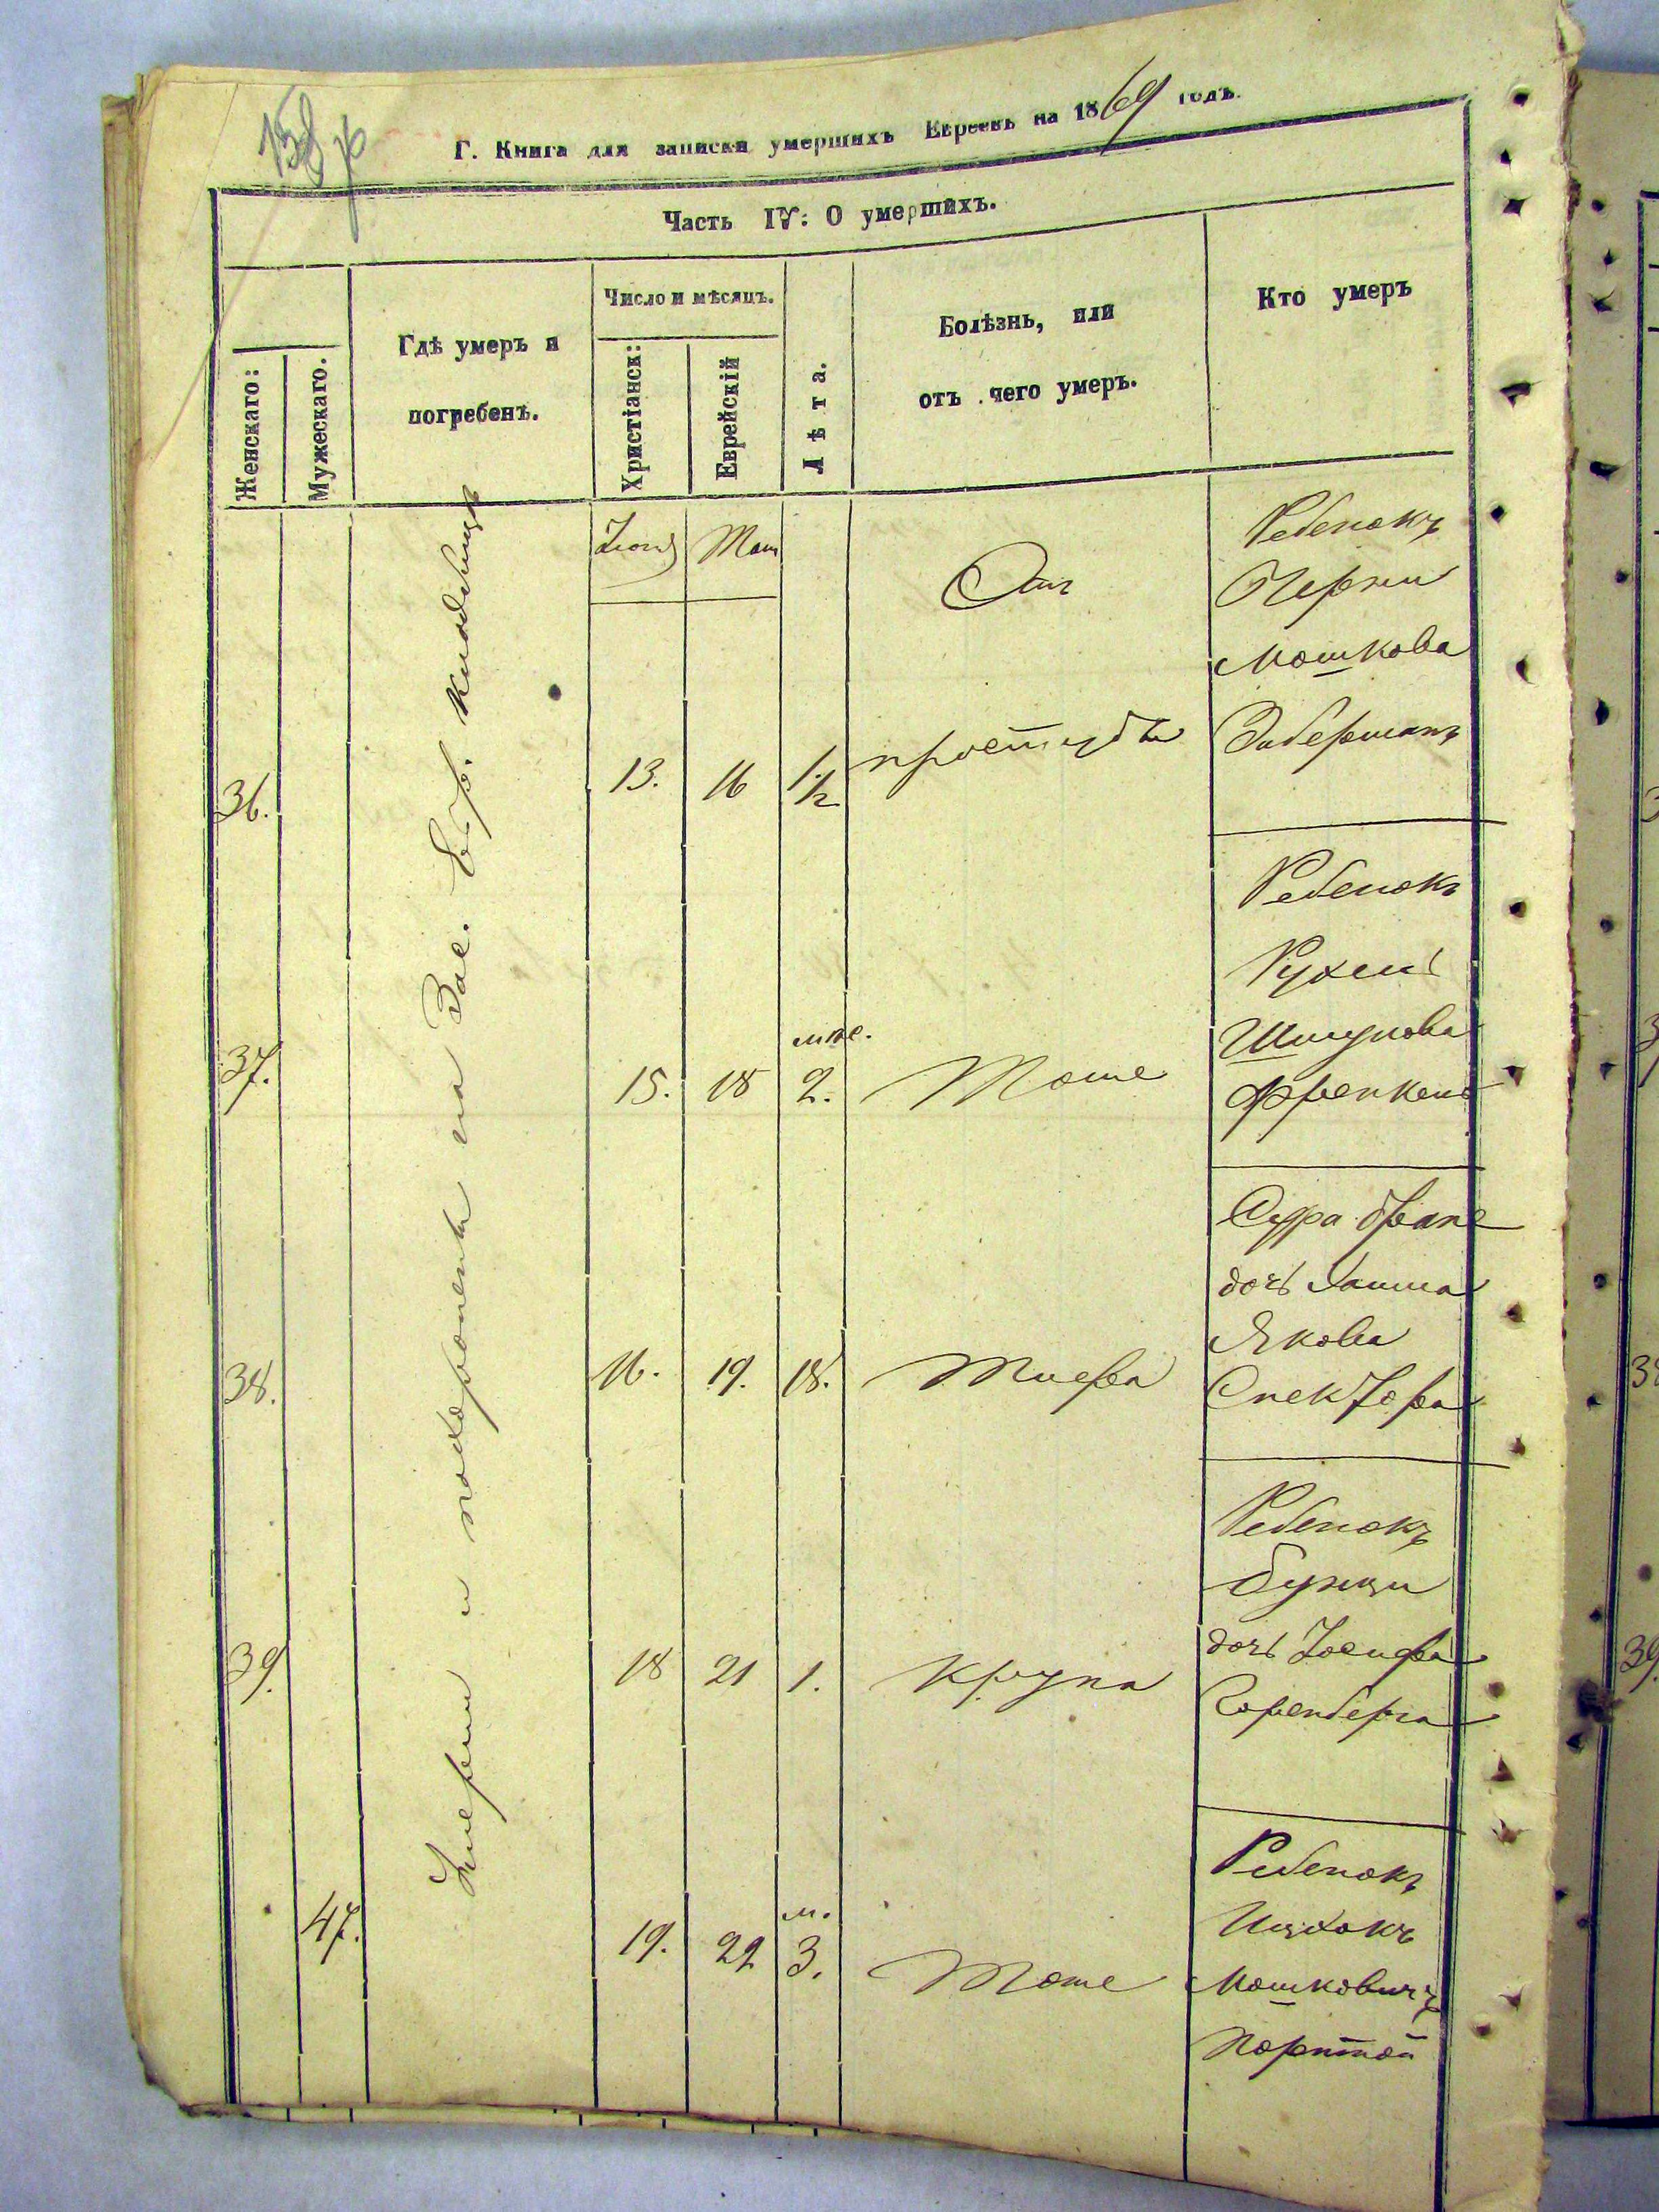 Г. Книга для записки умершихъ Евреевъ на 1869 годъ.
Часть IV: О умершихъ.
Женскаго:
Мужескаго.
Гдѣ умеръ и
погребенъ.
Число и мѣсяцъ.
Христіанск:
Еврейскій
Лѣта.
Болѣзнь, или
отъ чего умеръ.
Кто умеръ
Умерли и похоронены на Зас. Евр. кладбищѣ
Іюнь
Там
36.
13.
16
1 1/2
Отъ
простуды
Ребенокъ
Черни
Мошкова
Зильберманъ
37.
15.
18
мѣс.
2.
Тоже
Ребенокъ
Рухель
Шмунова
Френкель
38.
16.
19.
18.
Тифа
Сура
дочь Хаима
Якова
Спектора
39.
18
21
1.
Крупа
Ребенокъ
Бунци
дочь Іосифа
Горенберга
47.
19.
22
м.
3.
Тоже
Ребенокъ
Ицхокъ
Мошковичъ
Портной